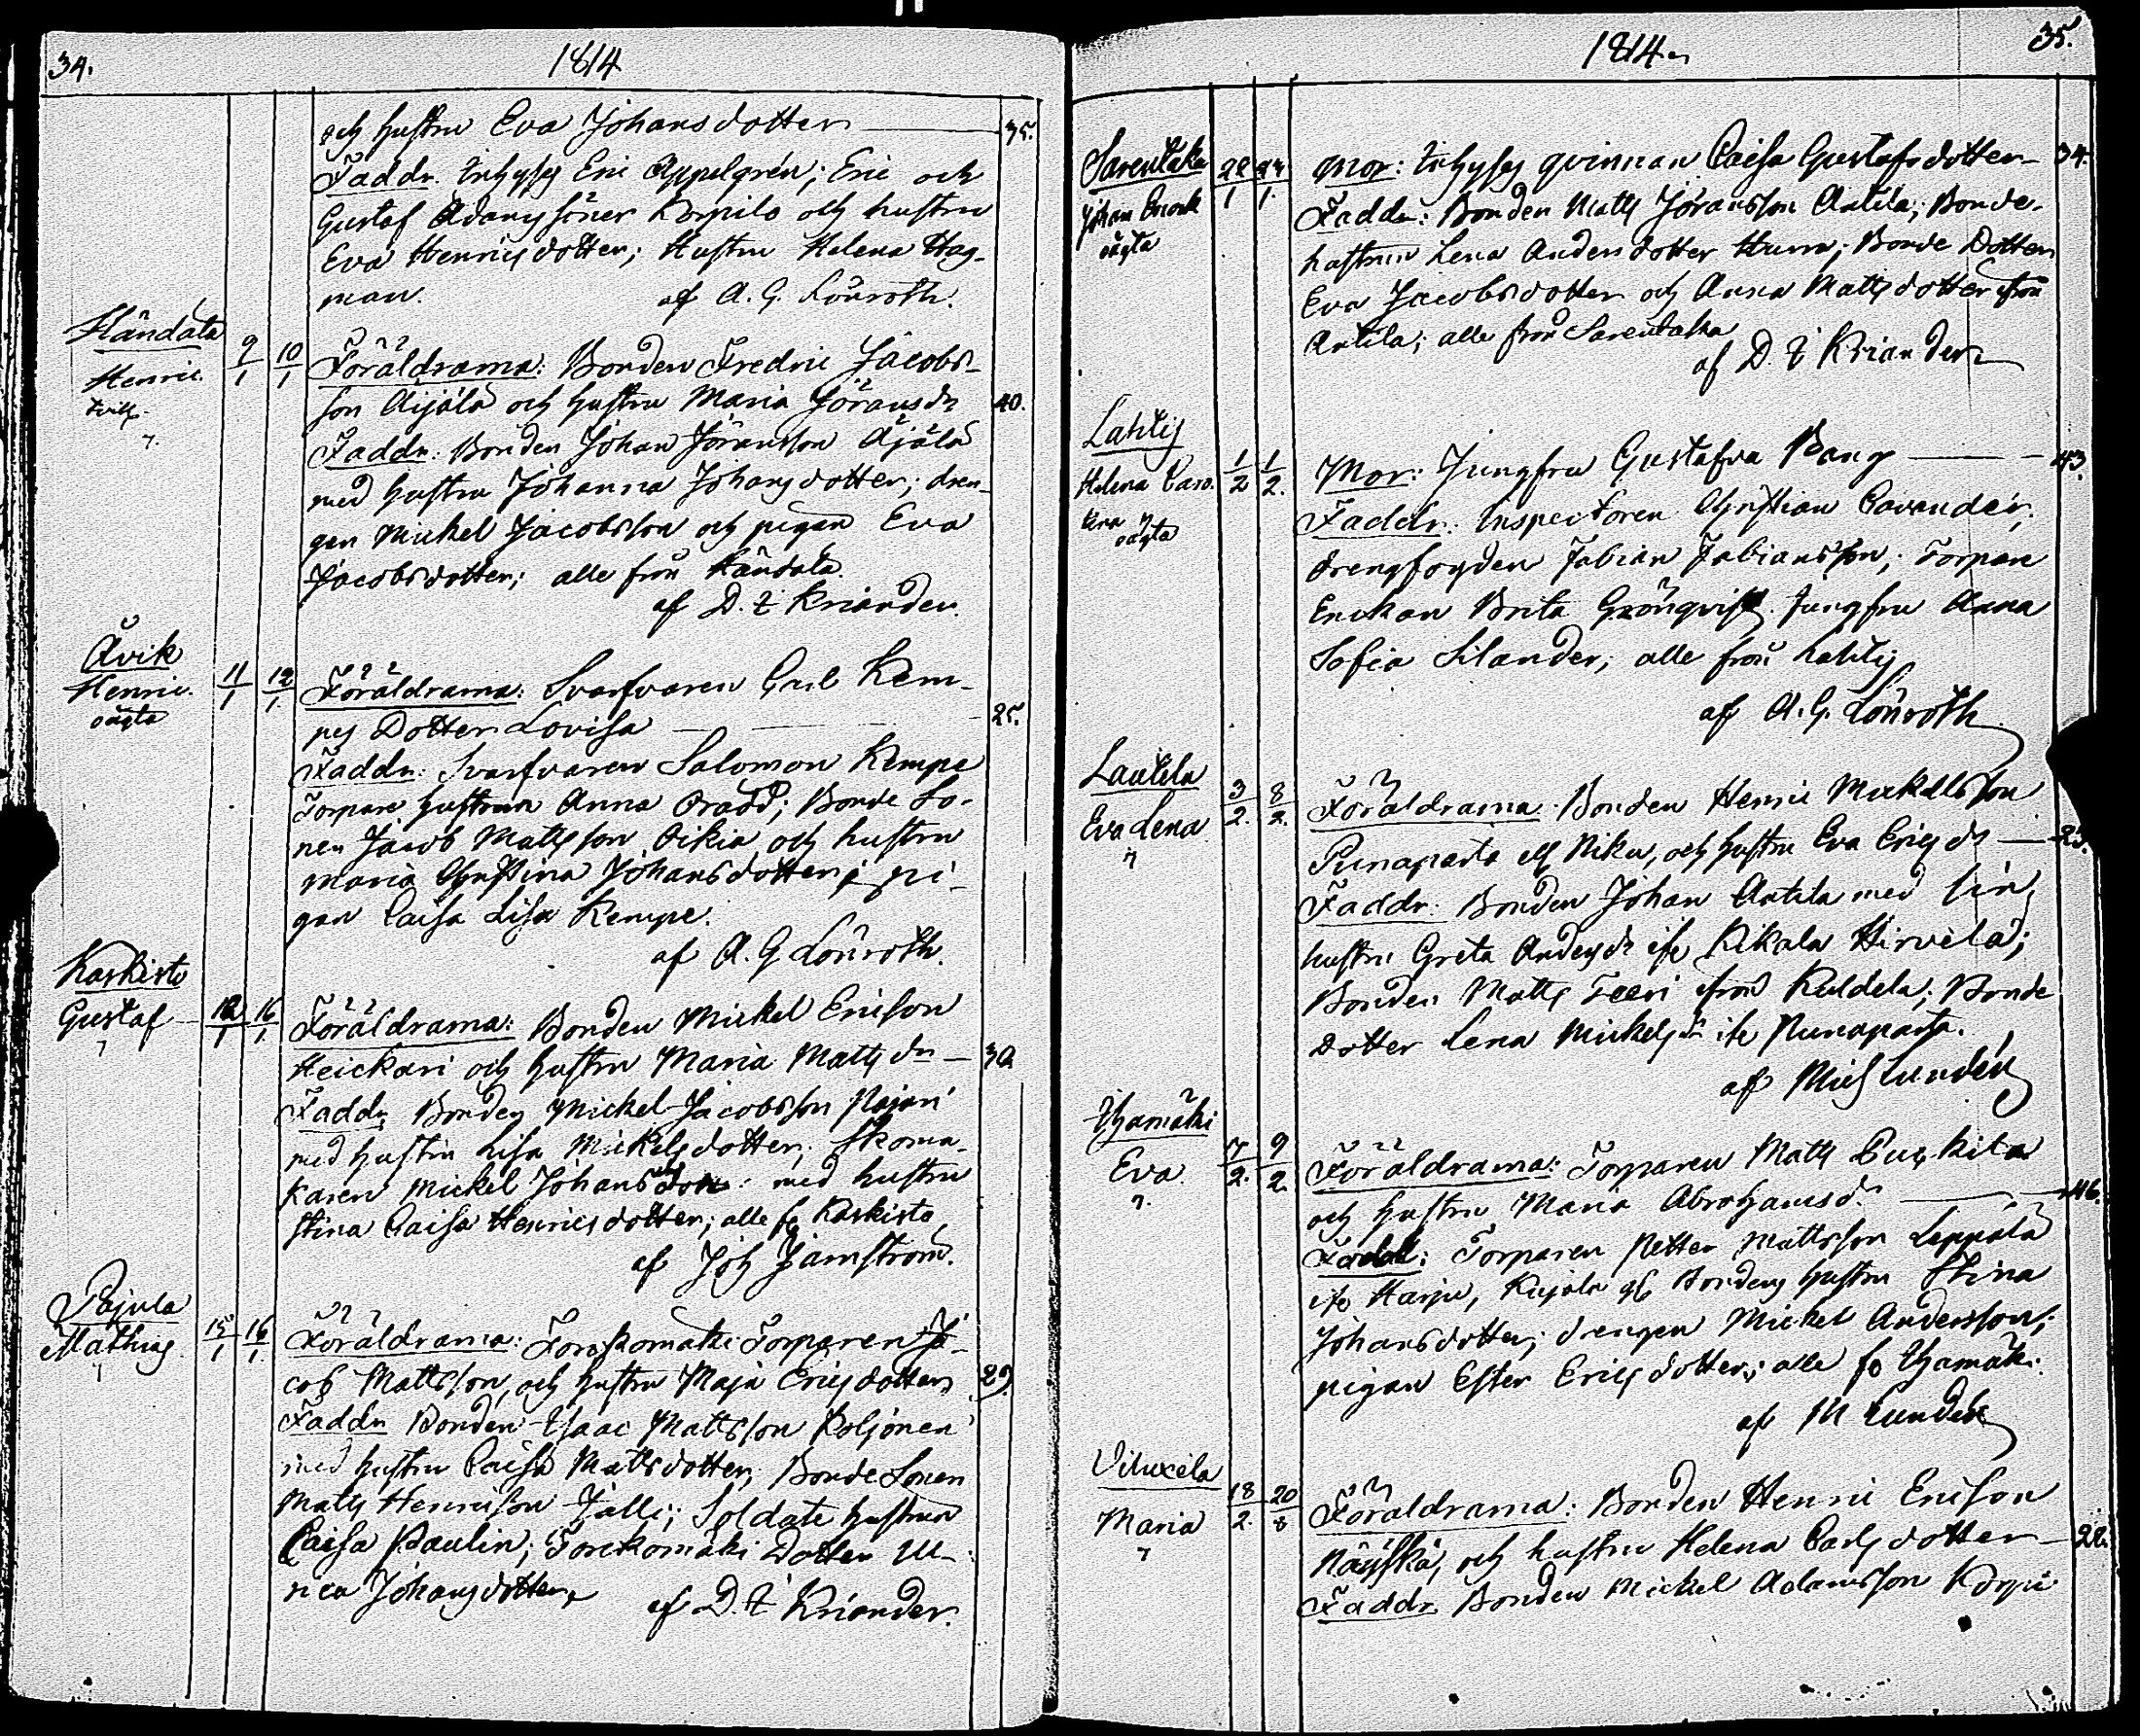 34.
1814
och hustru Eva Johansdotter 35.
Faddr. Inhyses Eric Appelgrén; Eric och
Gustaf Adamssöner Korpilo och hustru
Eva Henricsdotter; Hustru Helena Hag-
man. af A. G. Lönroth.
Händala
Henric
9/1 10/1
Föräldrarna: Bonden Fredric Jacobs-
son Äijälä och hustru Maria Jöransdr 40.
Faddr. Bonden Johan Jöransson Äijälä
med hustru Johanna Johansdotter; dren-
gen Mickel Jacobsson och pigan Eva
Jacobsdotter; alle från Händala.
af D. I Kriander.
Åvik
Henric.
oägta
11/1 12/1
Föräldrarna: Svarfvaren Carl Kem-
pes Dotter Lovisa 25.
Faddr: Svarfvaren Salomon Kempe
Torpare hustrun Anna Oradd; Bonde So-
nen Jacob Mattsson Oikia och hustru
Maria Christina Johansdotter; pi-
gan Caisa Lisa Kempe.
af A. G Lönroth.
Kaskisto
Gustaf
12/1 16/1
Föräldrarna: Bonden Mickel Ericson
Heickari och hustru Maria Matts dr 30.
Faddr. Bonden Mickel Jacobsson Pajari
med hustru Lisa Mickelsdotter; Skoma-
karen Mickel Johansson med hustru
Stina Caisa Henricsdotter; alle fr Kaskisto
af Joh Järnström.
Pajula
Mathias
15/1 16/1
Föräldrarna: Torpparen Ja-
cob Mattsson, och hustru Maja Ericsdotter 29.
Faddr Bonden Isaac Mattsson Koljonen
med hustru Caisa Mattsdotter; Bonde Sonen
Matts Henricsson Jälli; Soldats hustrun
Caisa Paulin; Dotter Ul-
rica Johansdotter
af D. I Kriander.
1814
35.
Sarentaka
Johan Enock
oägta
22/1 24/1
Mor: Inhyses qvinnan Caisa Gustafsdotter 34.
Faddr: Bonden Matts Jöransson Anttila; Bonde-
hustrun Lena Andersdotter; Bonde Dotter
Eva Jacobsdotter och Anna Mattsdotter från
Anttila; alle från Sarentaka
af D. I Kriander
Lahtis
Helena Caro-
lina
oägta
1/2 1/2.
Mor: Jungfru Gustafva Bang 43.
Faddr: Inspectoren Christian Cavander;
drengfogden Fabian Fabiansson; Torpare
Enckan Brita Grönqvist. Jungfru Anna
Sofia Silander; alle från Lahtis
af A. G. Lönroth
Lautela
Eva Lena
3/2. 8/2.
Föräldrarna: Bonden Henric Mickelsson
Punaparta ell Niku, och hustru Eva Erics dr 25.
Faddr: Bonden Johan Anttila med sin
hustru Greta Anders dr ifr Kikala Hirvelä;
Bonden Matts Teeri ifrån Kuldela; Bonde
Dotter Lena Mickels dr ifr Punaparta.
af Mich Lundén
Yhamäki
Eva
7/2. 9/2.
Föräldrarna: Torparen Matts Puckila
och hustru Maria Abrahamsd. 46.
Faddr: Torparen Petter Mattsson Leppälä
ifr Harju, Kujala Bondens hustru Stina
Johansdotter; drengen Mickel Andersson;
pigan Ester Ericsdotter; alle fr Yhamäki.
af M Lundén
Viluxela
Maria
18/2. 20/2
Föräldrarna: Bonden Henric Ericson
och hustru Helena Carlsdotter 22.
Faddr. Bonden Mickel Adamsson Korpi